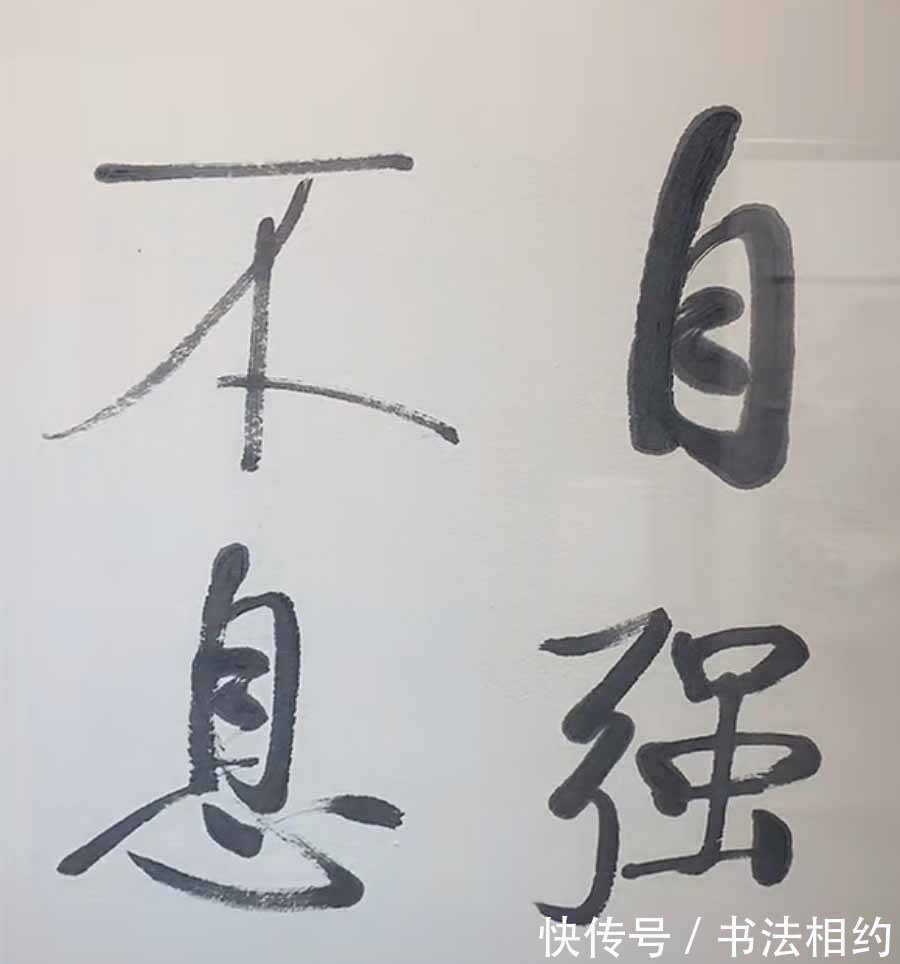 自强
不息
快传号/书法相约